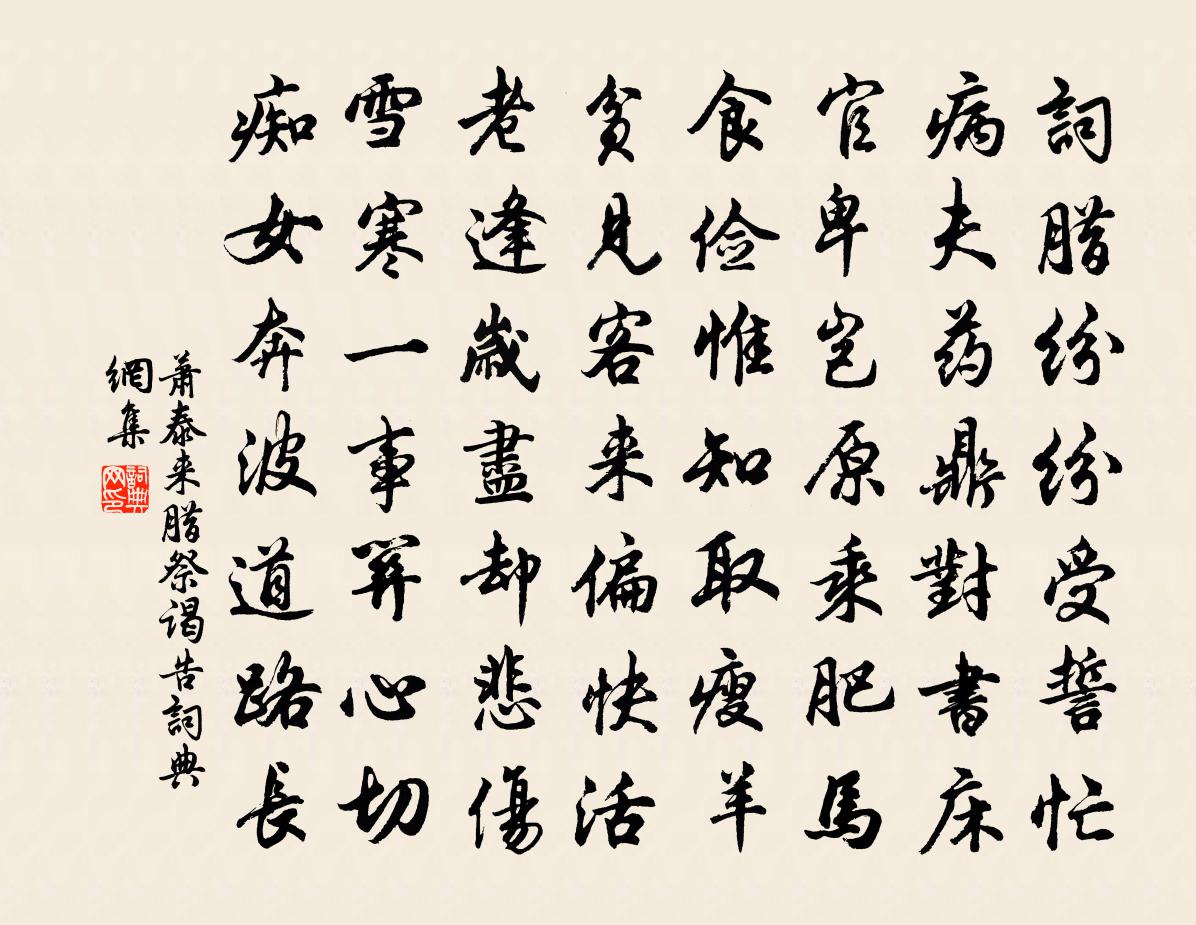 詞腊纷纷受誓忙
病夫药鼎對書床
官卑岂原乘肥馬
食俭惟知取瘦羊
貧見客来偏快活
老逢歲盡却悲傷
雪寒一事关心切
痴女奔波道路長
萧泰来腊祭谒告詞典
網集
詞典网印